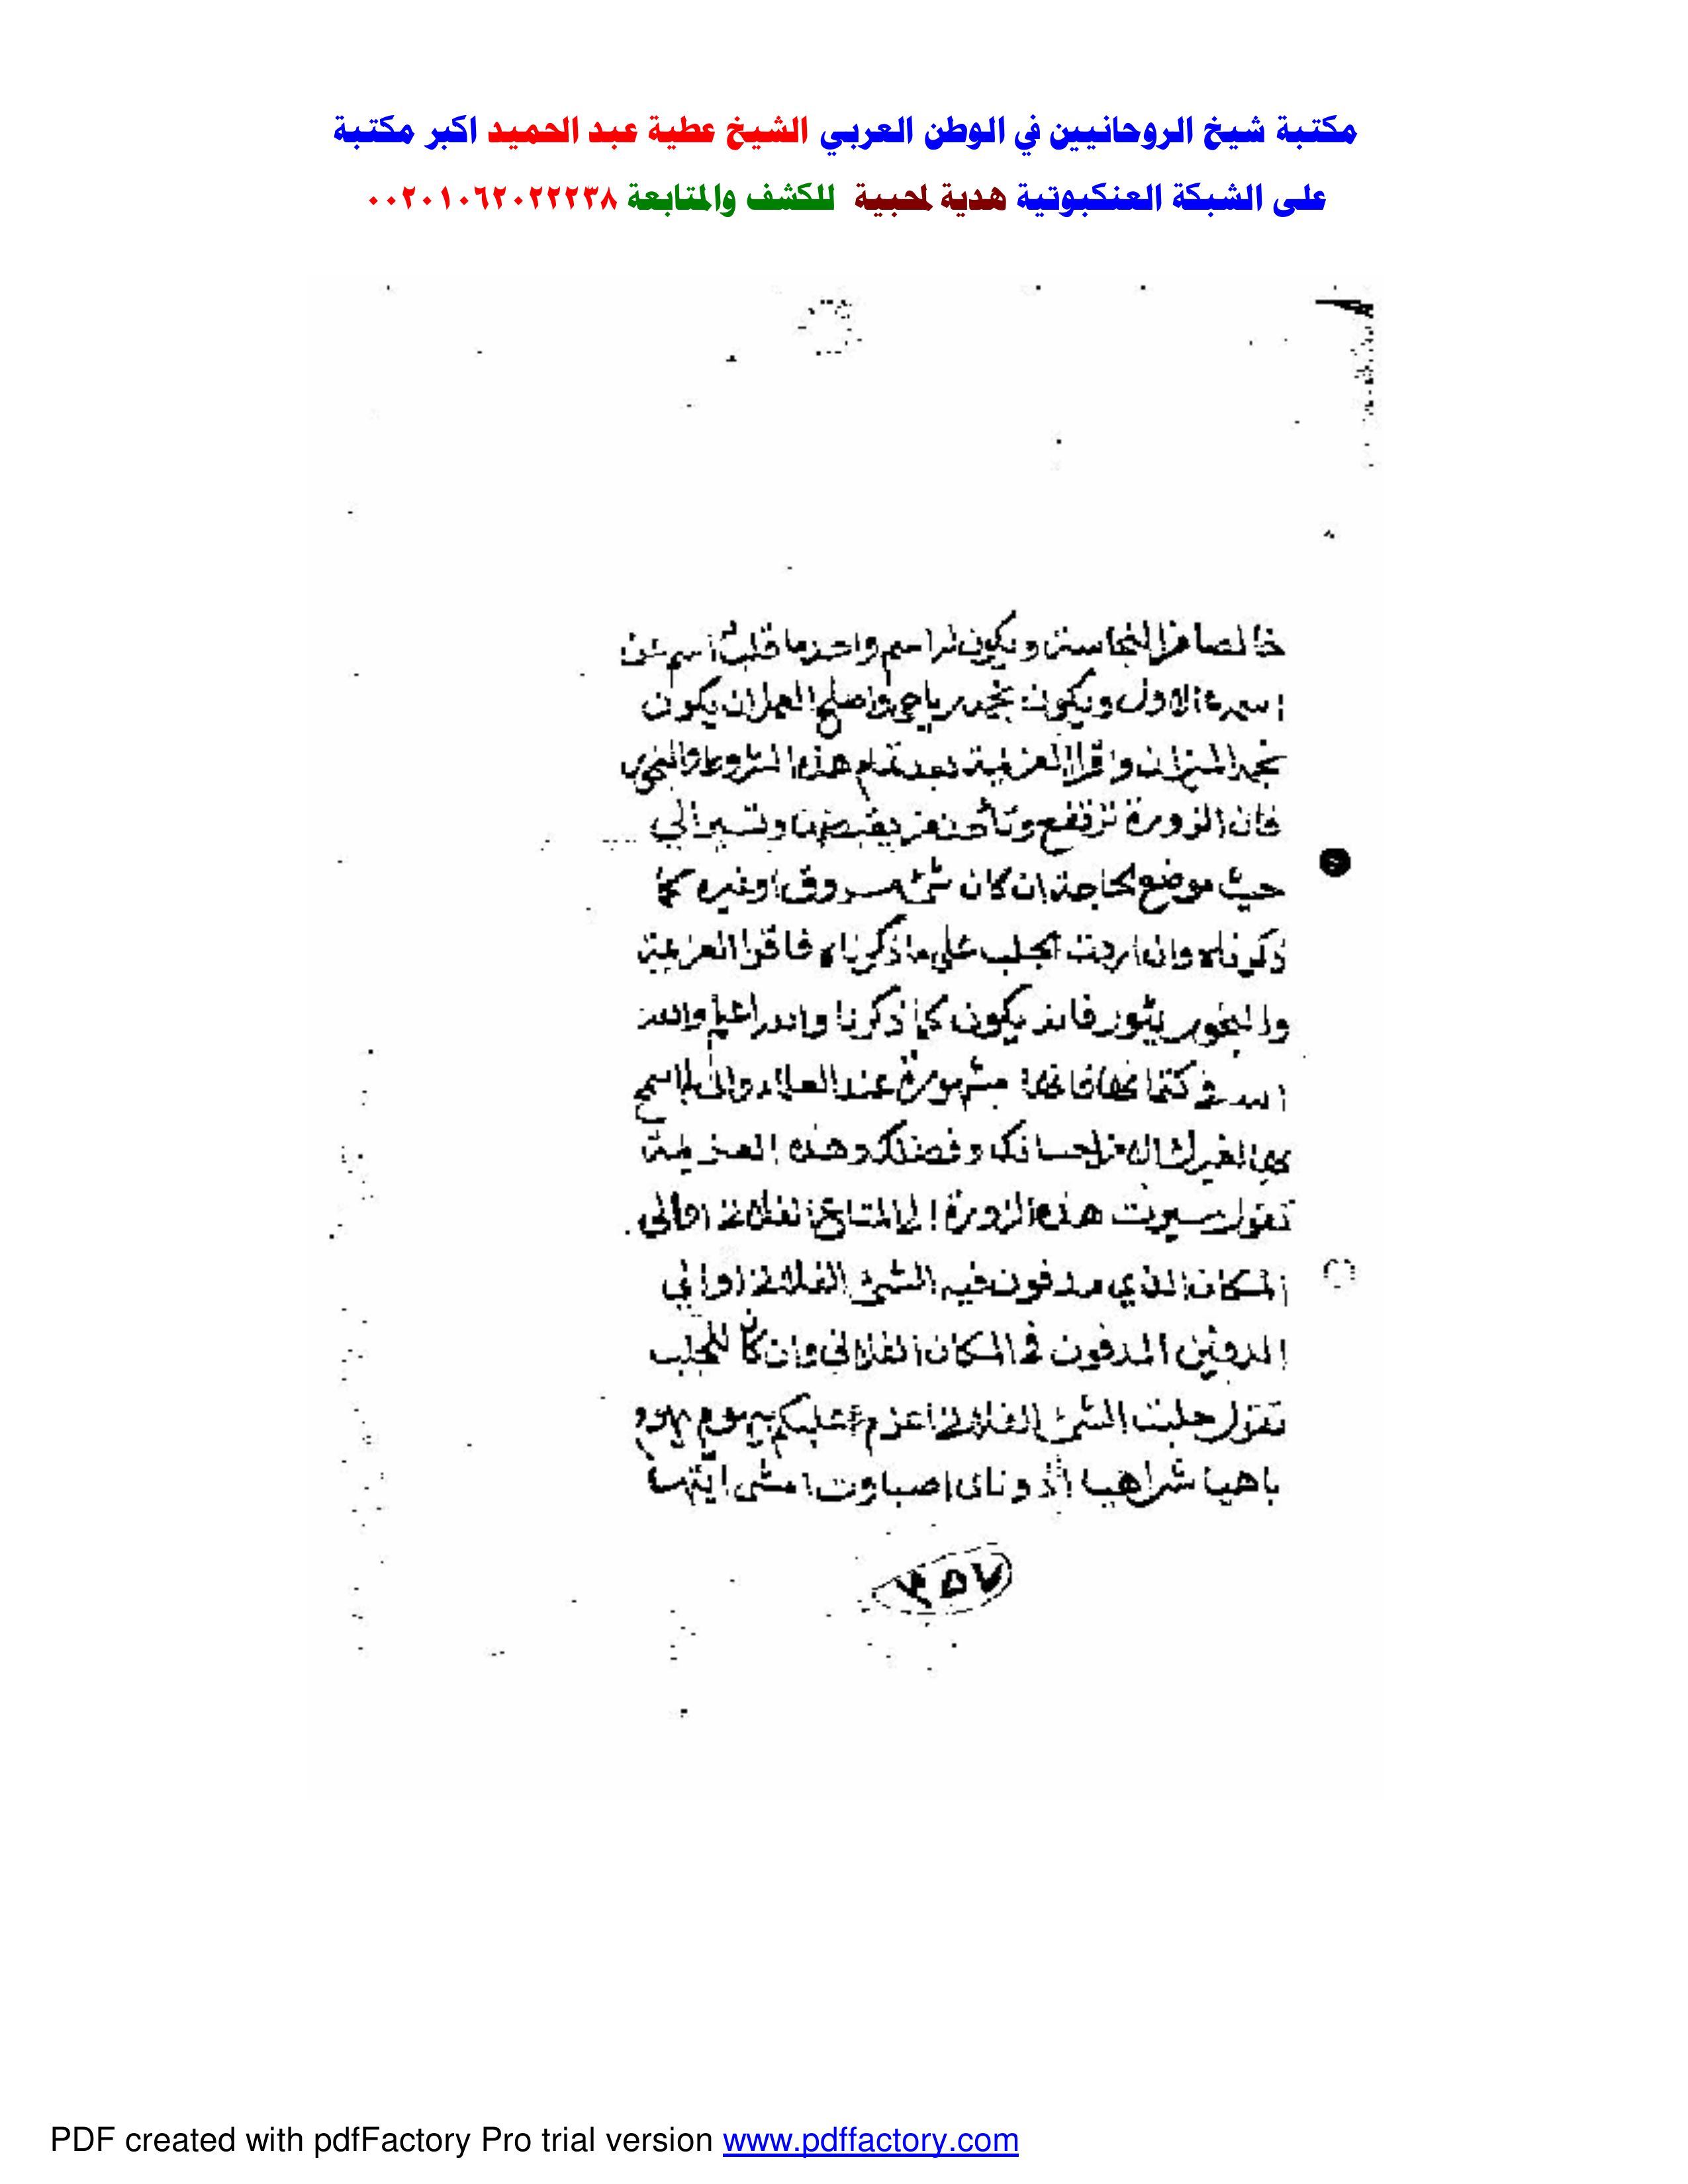 مكتبة شيخ الروحانيين في الوطن العربي الشيخ عطية عبد الحميد اكبر مكتبة
على الشبكة العنكبوتية هدية لمحبية للكشف والمتابعة ٠٠٢٠١٠٦٢٠٢٢٢٣٨
خالصا من النحاسة ويكون له اسم واحد ما قلب اسم عن
اسمه الاول ويكون بنجمه رياحي واصلح العمل ان يكون
بنجم الميزان واقرا العزيمة بعد تمام هذه الشروط والبخور
فان الزورة ترتفع وتأخذ من يقبضها وتسير الي
حيث موضع الحاجة ان كان شئ مسروق او غيره كما
ذكرناه وان اردت الجلب على ما ذكرناه فاقرا العزيمة
والبخور يثور فانه يكون كما ذكرنا والله اعلم والله
الله في كتمانها فانها مشهورة عند العلماء واني لم اسمح
بها لغيرك الا من احسانك وفضلك وهذه العزيمة
تقول سيرت هذه الزورة الي المتاع الفلاني اوالى
المكان الذي مدفون فيه الشئ الفلاني اوالي
الدفين المدفون في المكان الفلاني وان كان للجلب
تقول جلبت الشئ الفلاني اعزم عليكم
باهيا شراهيا اذوناى اصباوت امشى ايتها
٣٥٧
PDF created with pdfFactory Pro trial version www.pdffactory.com